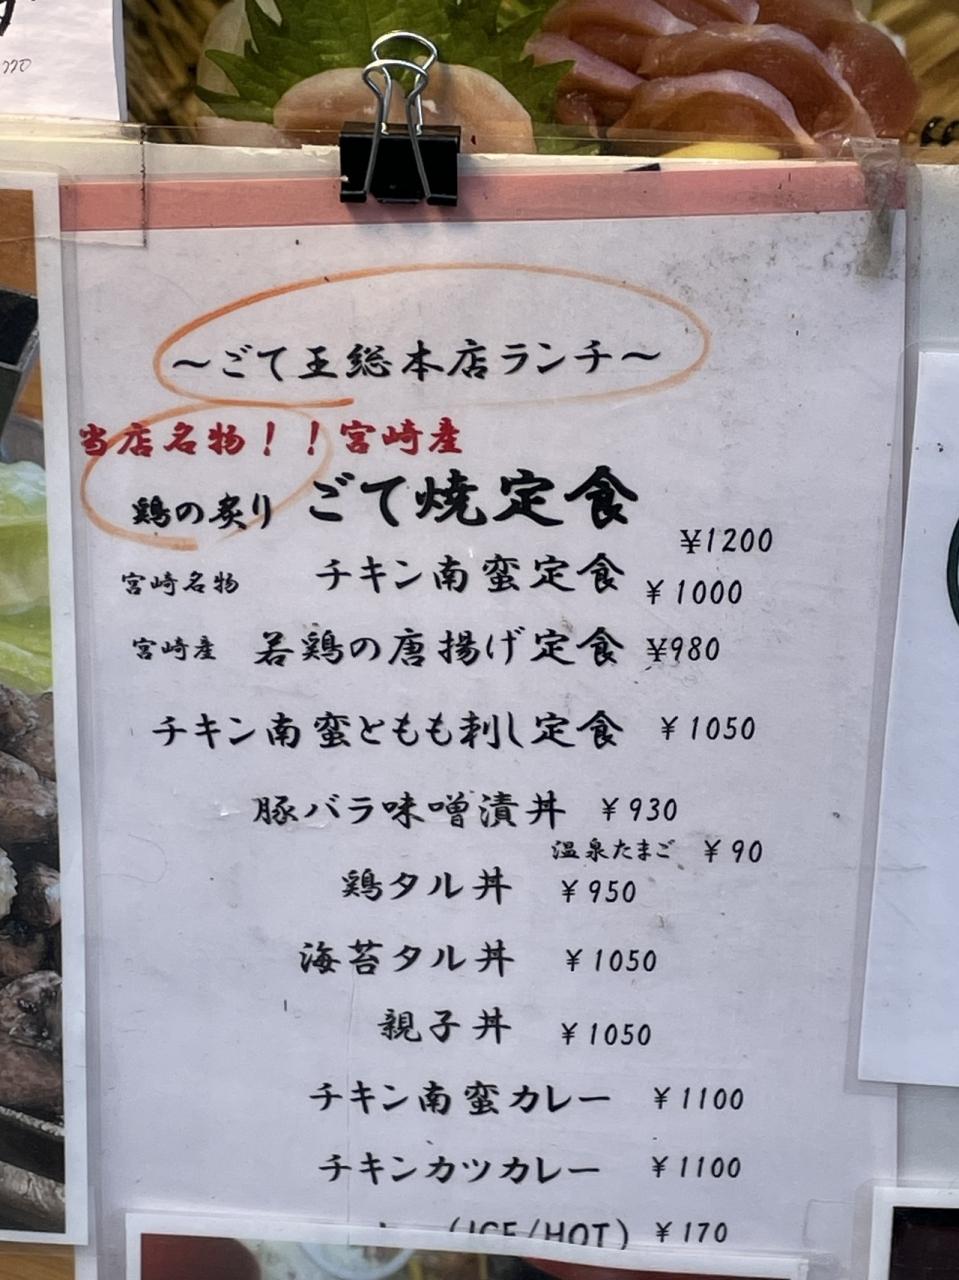 ～ごて王総本店ランチ～
当店名物！！宮崎産
鶏の炙り ごて焼定食 ¥1200
宮崎名物 チキン南蛮定食 ¥1000
宮崎産 若鶏の唐揚げ定食 ¥980
チキン南蛮ともも刺し定食 ¥1050
豚バラ味噌漬丼 ¥930
温泉たまご ¥90
鶏タル丼 ¥950
海苔タル丼 ¥1050
親子丼 ¥1050
チキン南蛮カレー ¥1100
チキンカツカレー ¥1100
(ICE/HOT) ¥170